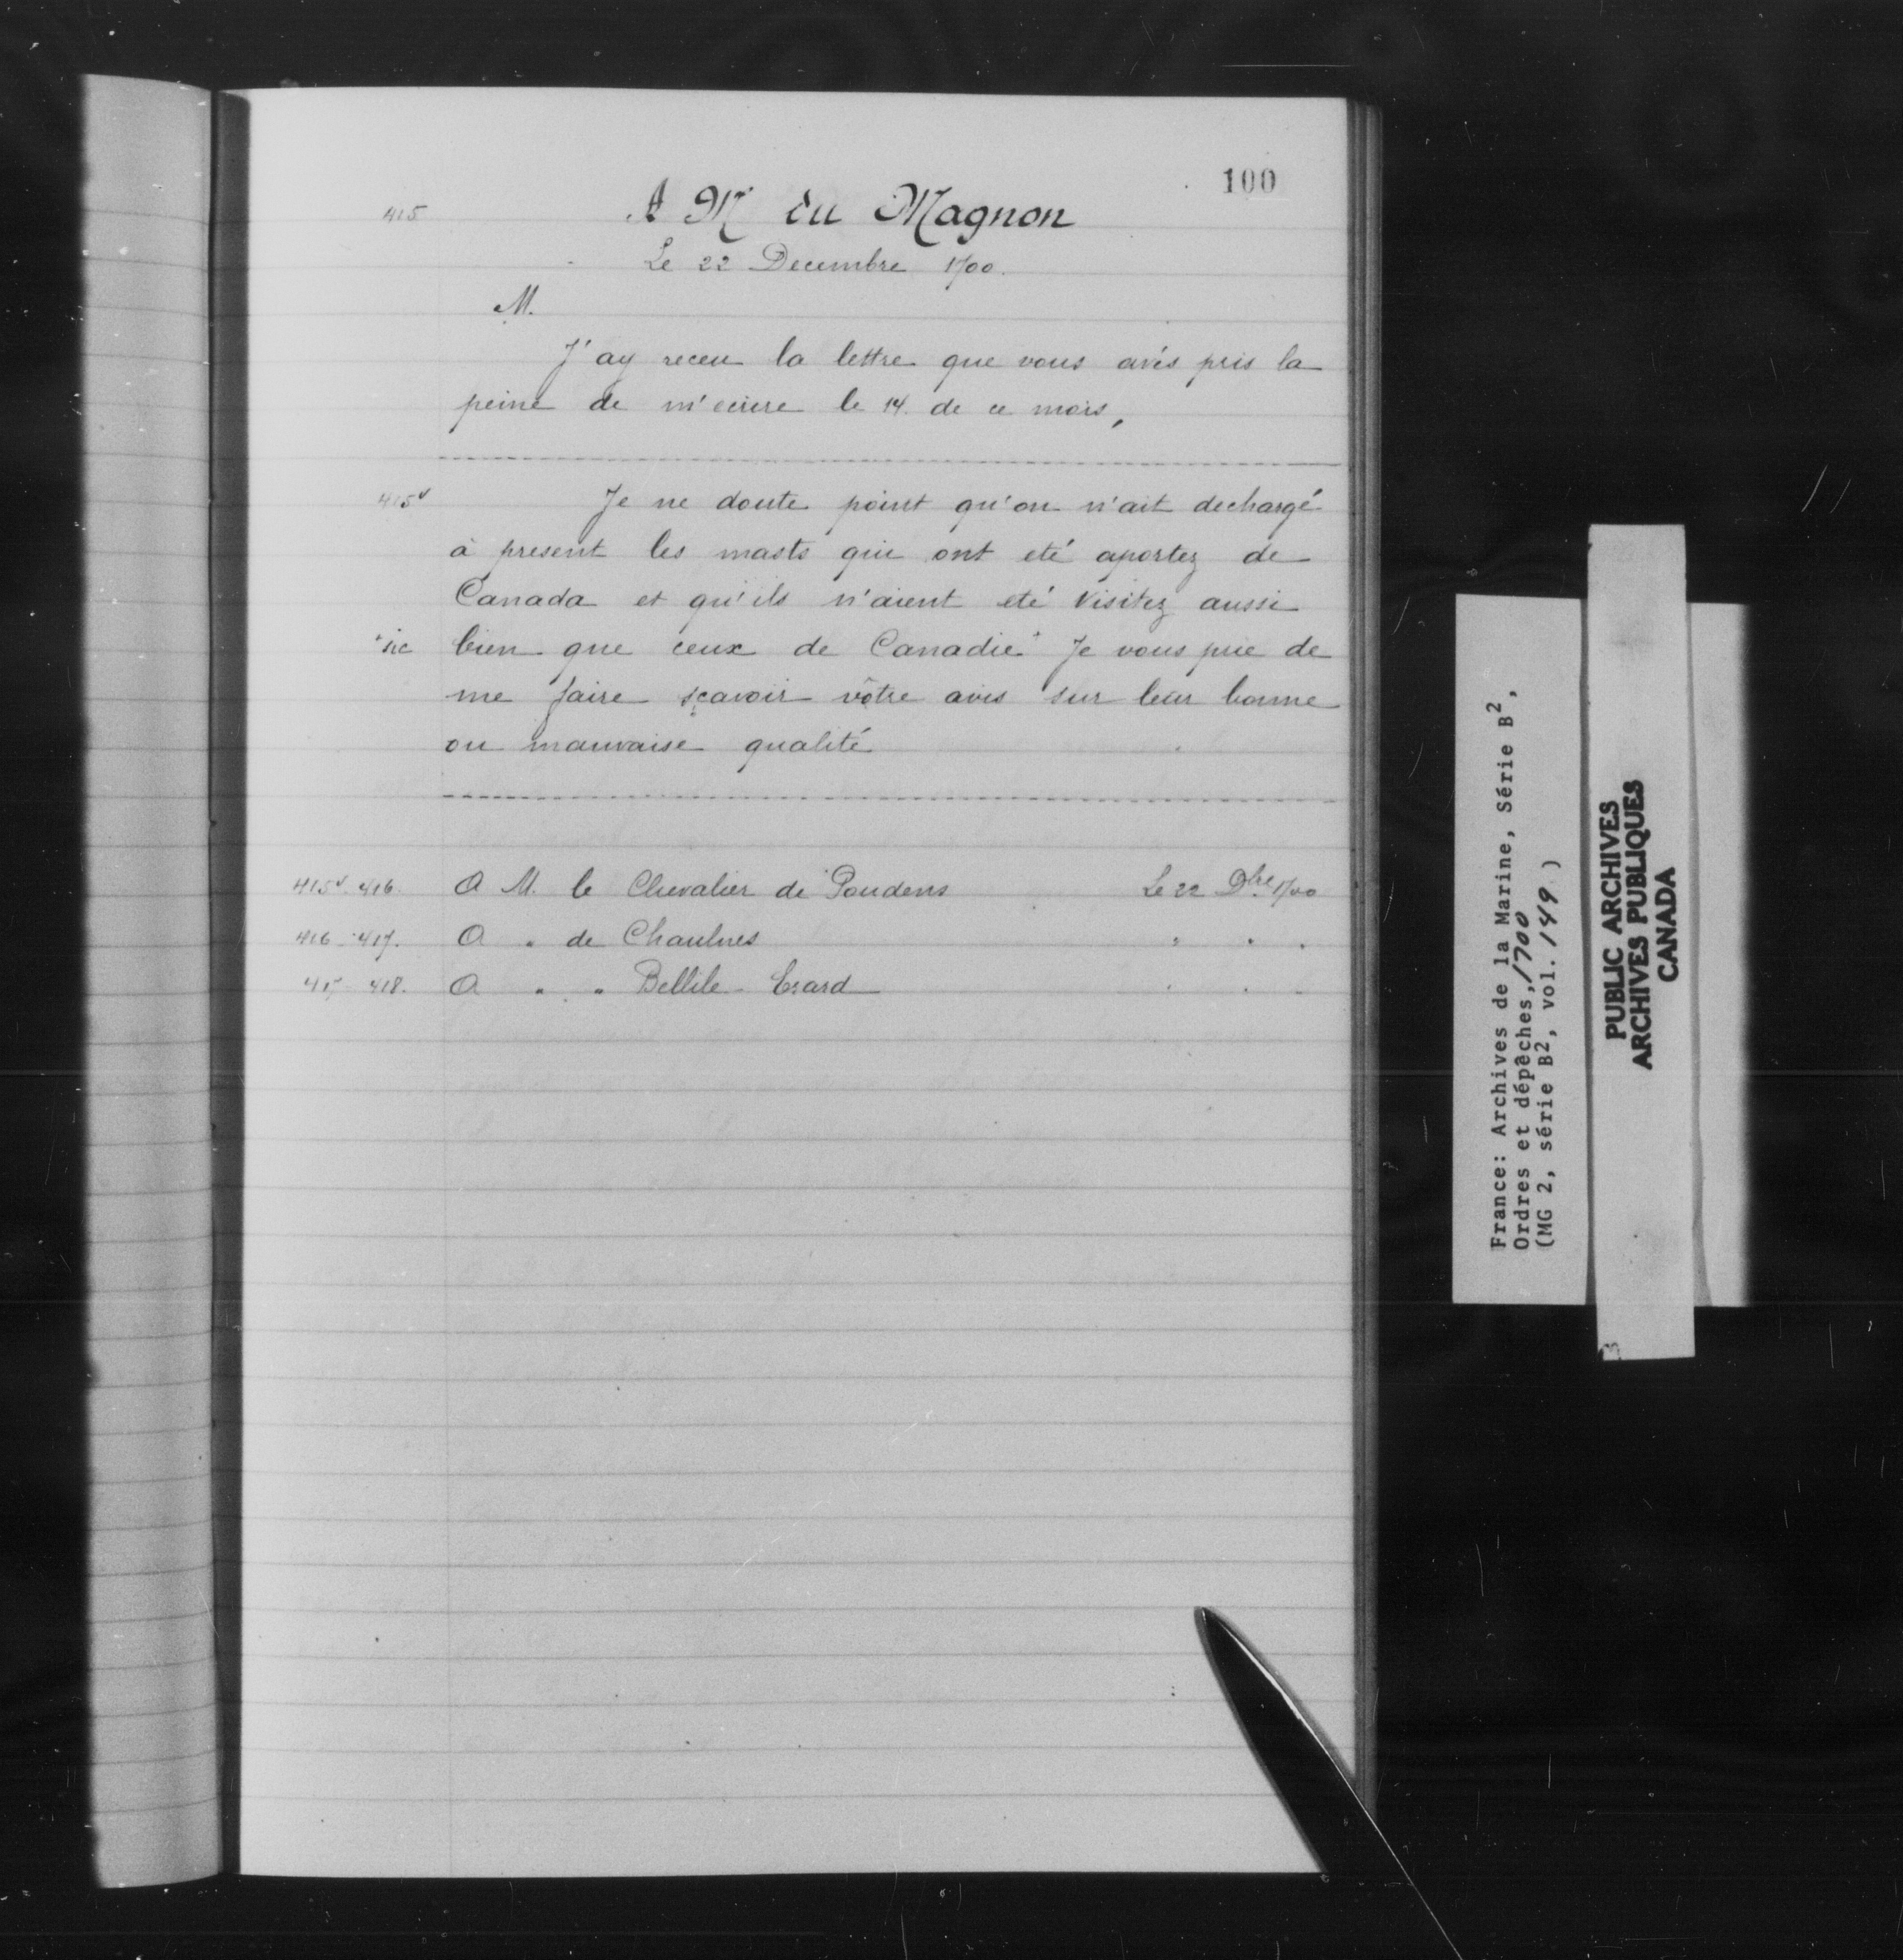 100
415 A Mr du Magnon
Le 22 Decembre 1700.
M.
J'ay receu la lettre que vous avés pris la
peine de m'ecrire le 14. de ce mois,
415v Je ne doute point qu'on n'ait dechargé
à present les masts qui ont eté aportez de
Canada et qu'ils n'aient eté visitez aussi
+sic bien que ceux de Canadie+ Je vous prie de
me faire sçavoir vôtre avis sur leur bonne
ou mauvaise qualité
415v. 416. A M. le Chevalier de Poudens Le 22 Dbre 1700
416-417. A " de Chaulnes " " "
417-418. A " " Bellile-Erard " " "
France: Archives de la Marine, Série B2,
Ordres et dépêches, 1700
(MG 2, série B2, vol. 149 )
PUBLIC ARCHIVES
ARCHIVES PUBLIQUES
CANADA